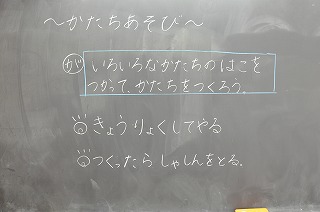 ～かたちあそび～
が いろいろなかたちのはこを
つかって、かたちをつくろう。
きょうりょくしてやる
つくったら しゃしんをとる。